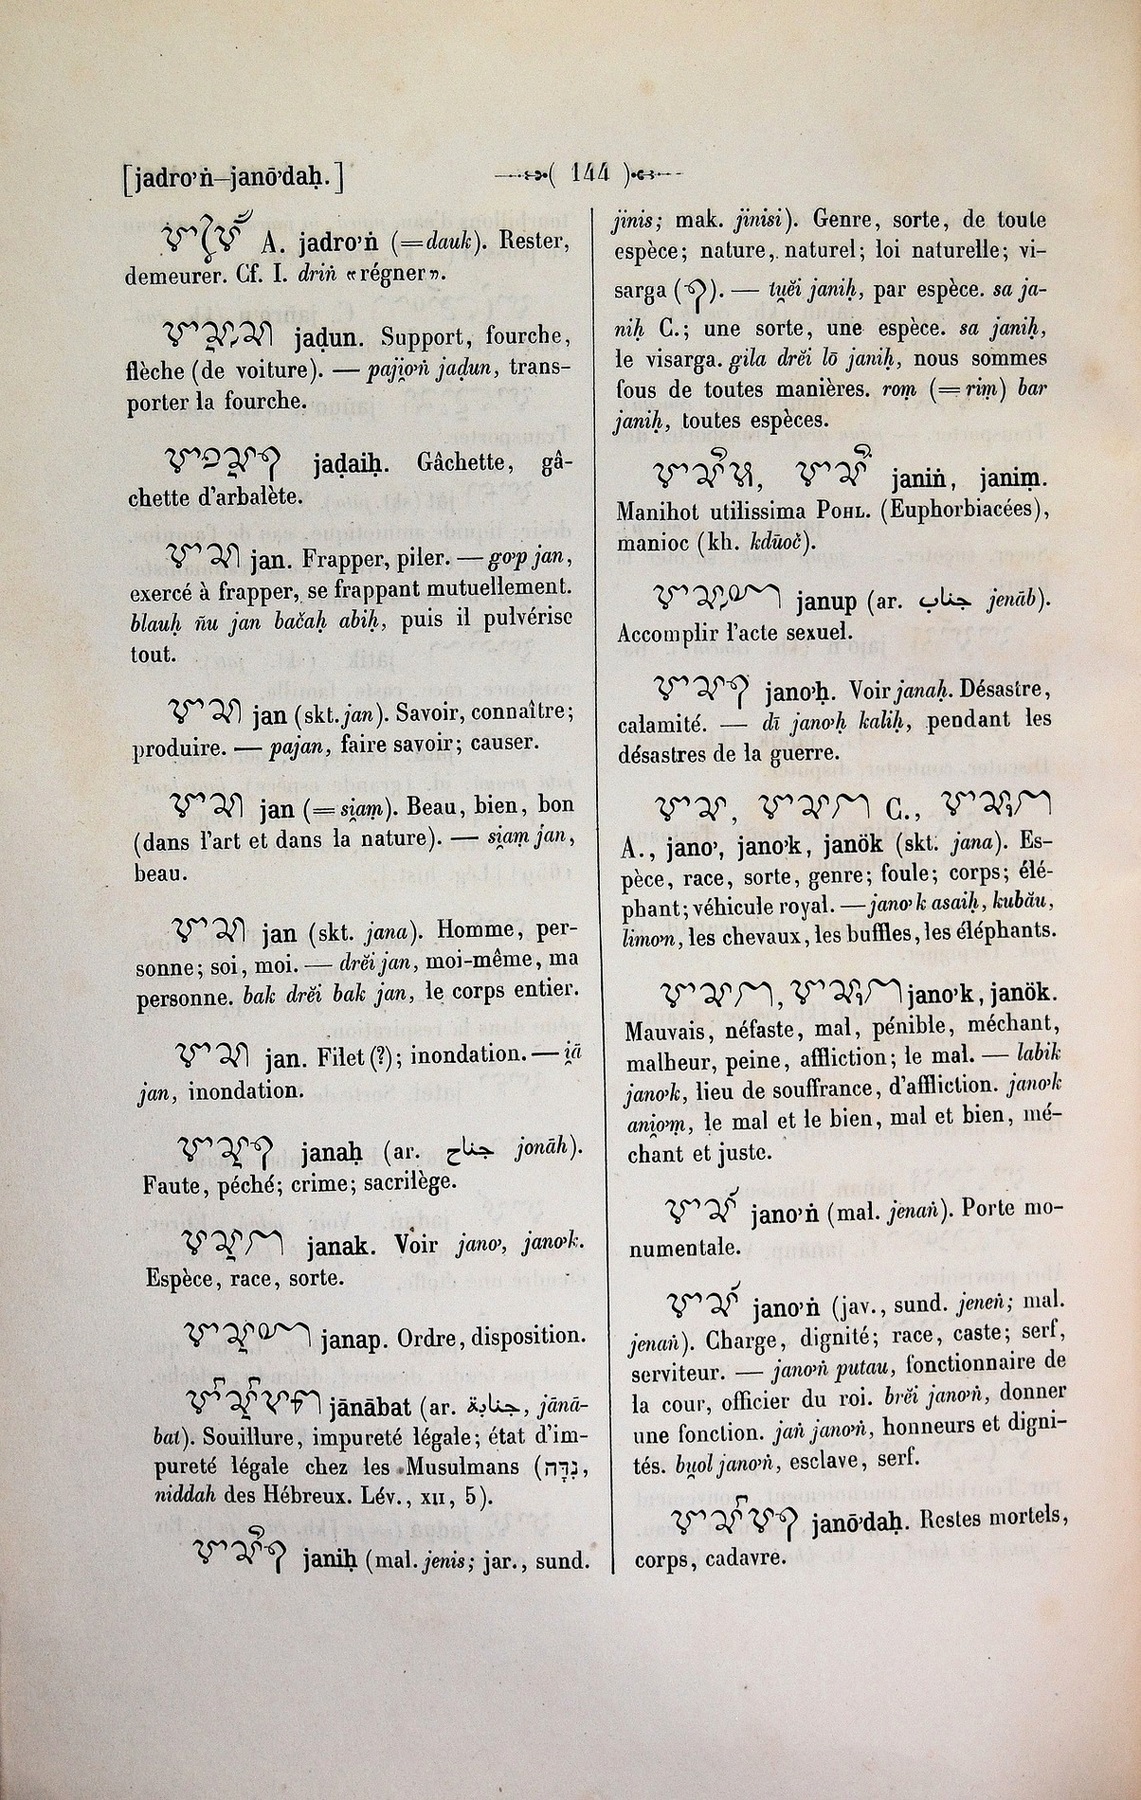 [jadro’ṅ–janō’daḥ.] ( 144 )
A. jadro’ṅ (=dauk). Rester,
demeurer. Cf. I. driṅ «régner».
jaḍun. Support, fourche,
flèche (de voiture). — pajio’ṅ jaḍun, trans-
porter la fourche.
jaḍaiḥ. Gâchette, gâ-
chette d’arbalète.
jan. Frapper, piler. — go’p jan,
exercé à frapper, se frappant mutuellement.
blauḥ ñu jan bačaḥ abiḥ, puis il pulvérise
tout.
jan (skt. jan). Savoir, connaître;
produire. — pajan, faire savoir; causer.
jan (=si̭aṃ). Beau, bien, bon
(dans l’art et dans la nature). — si̭aṃ jan,
beau.
jan (skt. jana). Homme, per-
sonne; soi, moi. — drĕi jan, moi-même, ma
personne. bak drĕi bak jan, le corps entier.
jan. Filet (?); inondation. — i̭ā
jan, inondation.
janaḥ (ar. جناح jonāh).
Faute, péché; crime; sacrilège.
janak. Voir jano’, jano’k.
Espèce, race, sorte.
janap. Ordre, disposition.
jānābat (ar. جنابة, jānā-
bat). Souillure, impureté légale; état d’im-
pureté légale chez les Musulmans (נִדָּה,
niddah des Hébreux. Lév., XII, 5).
janiḥ (mal. jenis; jar., sund.
jinis; mak. jinisi). Genre, sorte, de toute
espèce; nature, naturel; loi naturelle; vi-
sarga ( ). — tṷĕi janiḥ, par espèce. sa ja-
niḥ C.; une sorte, une espèce. sa janiḥ,
le visarga. gila drĕi lō janiḥ, nous sommes
fous de toutes manières. roṃ (=riṃ) bar
janiḥ, toutes espèces.
, janiṅ, janiṃ.
Manihot utilissima POHL. (Euphorbiacées),
manioc (kh. kdūoč).
janup (ar. جناب jenāb).
Accomplir l’acte sexuel.
jano’ḥ. Voir janaḥ. Désastre,
calamité. — dī jano’ḥ kaliḥ, pendant les
désastres de la guerre.
, C.,
A., jano’, jano’k, janök (skt. jana). Es-
pèce, race, sorte, genre; foule; corps; élé-
phant; véhicule royal. — jano’k asaiḥ, kubău,
limo’n, les chevaux, les buffles, les éléphants.
, jano’k, janök.
Mauvais, néfaste, mal, pénible, méchant,
malheur, peine, affliction; le mal. — labik
jano’k, lieu de souffrance, d’affliction. jano’k
ani̭o’ṃ, le mal et le bien, mal et bien, mé-
chant et juste.
jano’ṅ (mal. jenaṅ). Porte mo-
numentale.
jano’ṅ (jav., sund. jeneṅ; mal.
jenaṅ). Charge, dignité; race, caste; serf,
serviteur. — jano’ṅ putau, fonctionnaire de
la cour, officier du roi. brĕi jano’ṅ, donner
une fonction. jaṅ jano’ṅ, honneurs et digni-
tés. bṷol jano’ṅ, esclave, serf.
janō’daḥ. Restes mortels,
corps, cadavre.